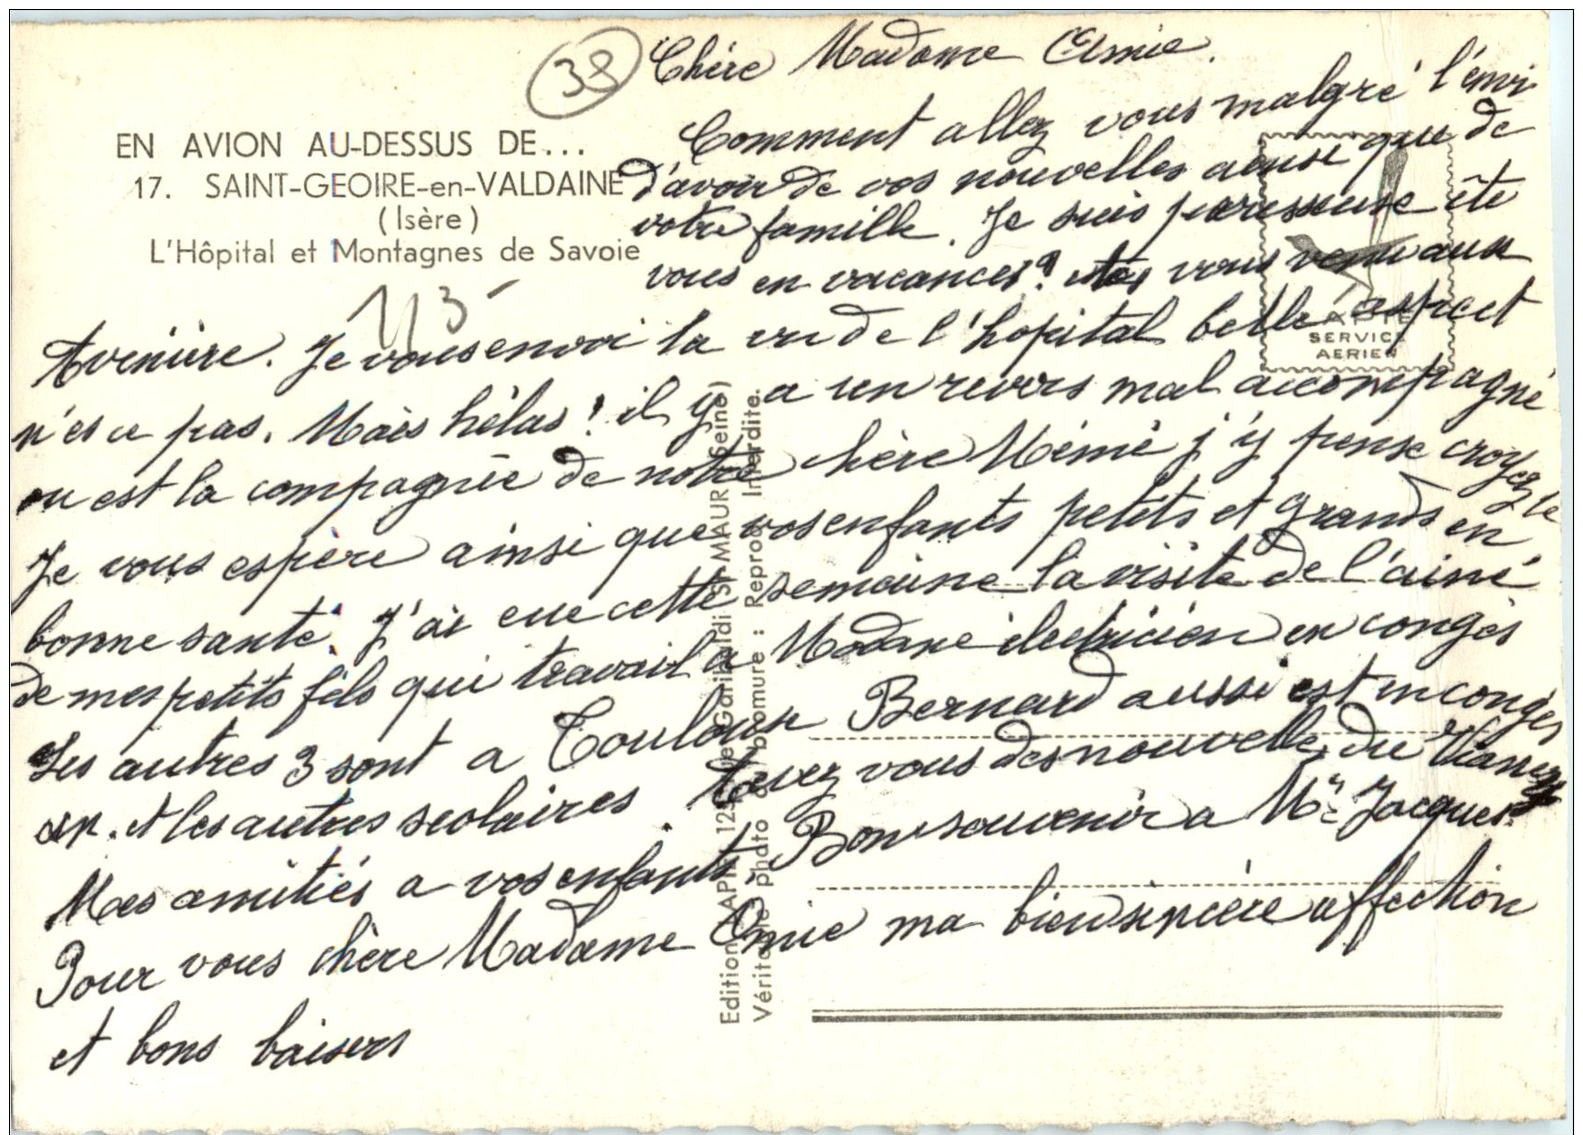 38
EN AVION AU-DESSUS DE...
17. SAINT-GEOIRE-en-VALDAINE
(Isère)
L'Hôpital et Montagnes de Savoie
113-
Chère Madame
Comment allez vous malgré l'envi
d'avoir de vos nouvelles ainsi que de
votre famille. Je suis paresseuse ête
vous en vacances? etes vous venu aux
Avenière. Je vous envoi la vu de l'hopital belle aspect
n'es ce pas. Mais hélas! il y a un revers mal accompagné
ou est la compagnie de notre chère Mémé j'y pense croyez le
Je vous espère ainsi que vos enfants petits et grands en
bonne santé. J'ai eue cette semaine la visite de l'ainé
de mes petits fils qui travail a Modane électricien en congès
Les autres 3 sont a Toulouse Bernard aussi est en congès
et les autres scolaires. Avez vous des nouvelles du
Mes amitiés a vos enfants. Bon souvenir a Mr Jacques.
Pour vous chère Madame ma bien sincère affection
et bons baisers
SERVICE
AERIEN
Editions LAPIE 125 Garibaldi St-MAUR (Seine)
Véritable photo au bromure : Reprod. Interdite.